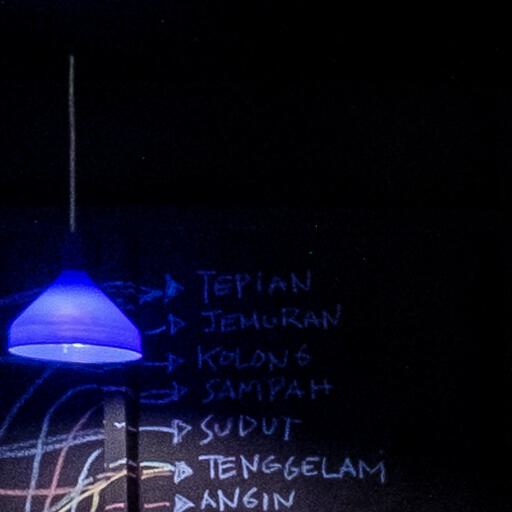 TEPIAN
JEMURAN
KOLONG
SAMPAH
SUDUT
TENGGELAM
ANGIN